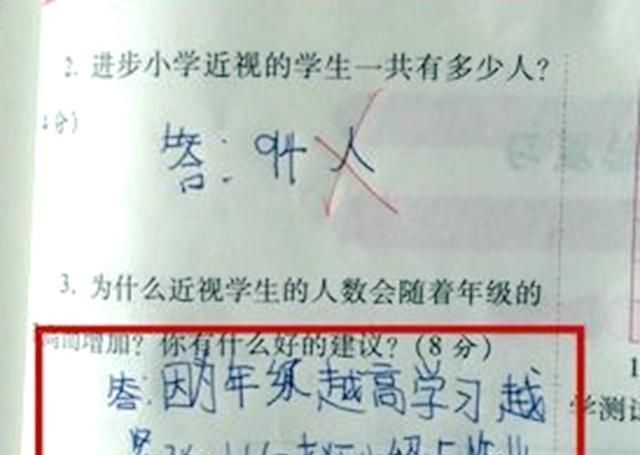 2. 进步小学近视的学生一共有多少人?
分)
答: 94人
3. 为什么近视学生的人数会随着年级的
高而增加? 你有什么好的建议? (8分)
答: 因为年级越高学习越
1
学测